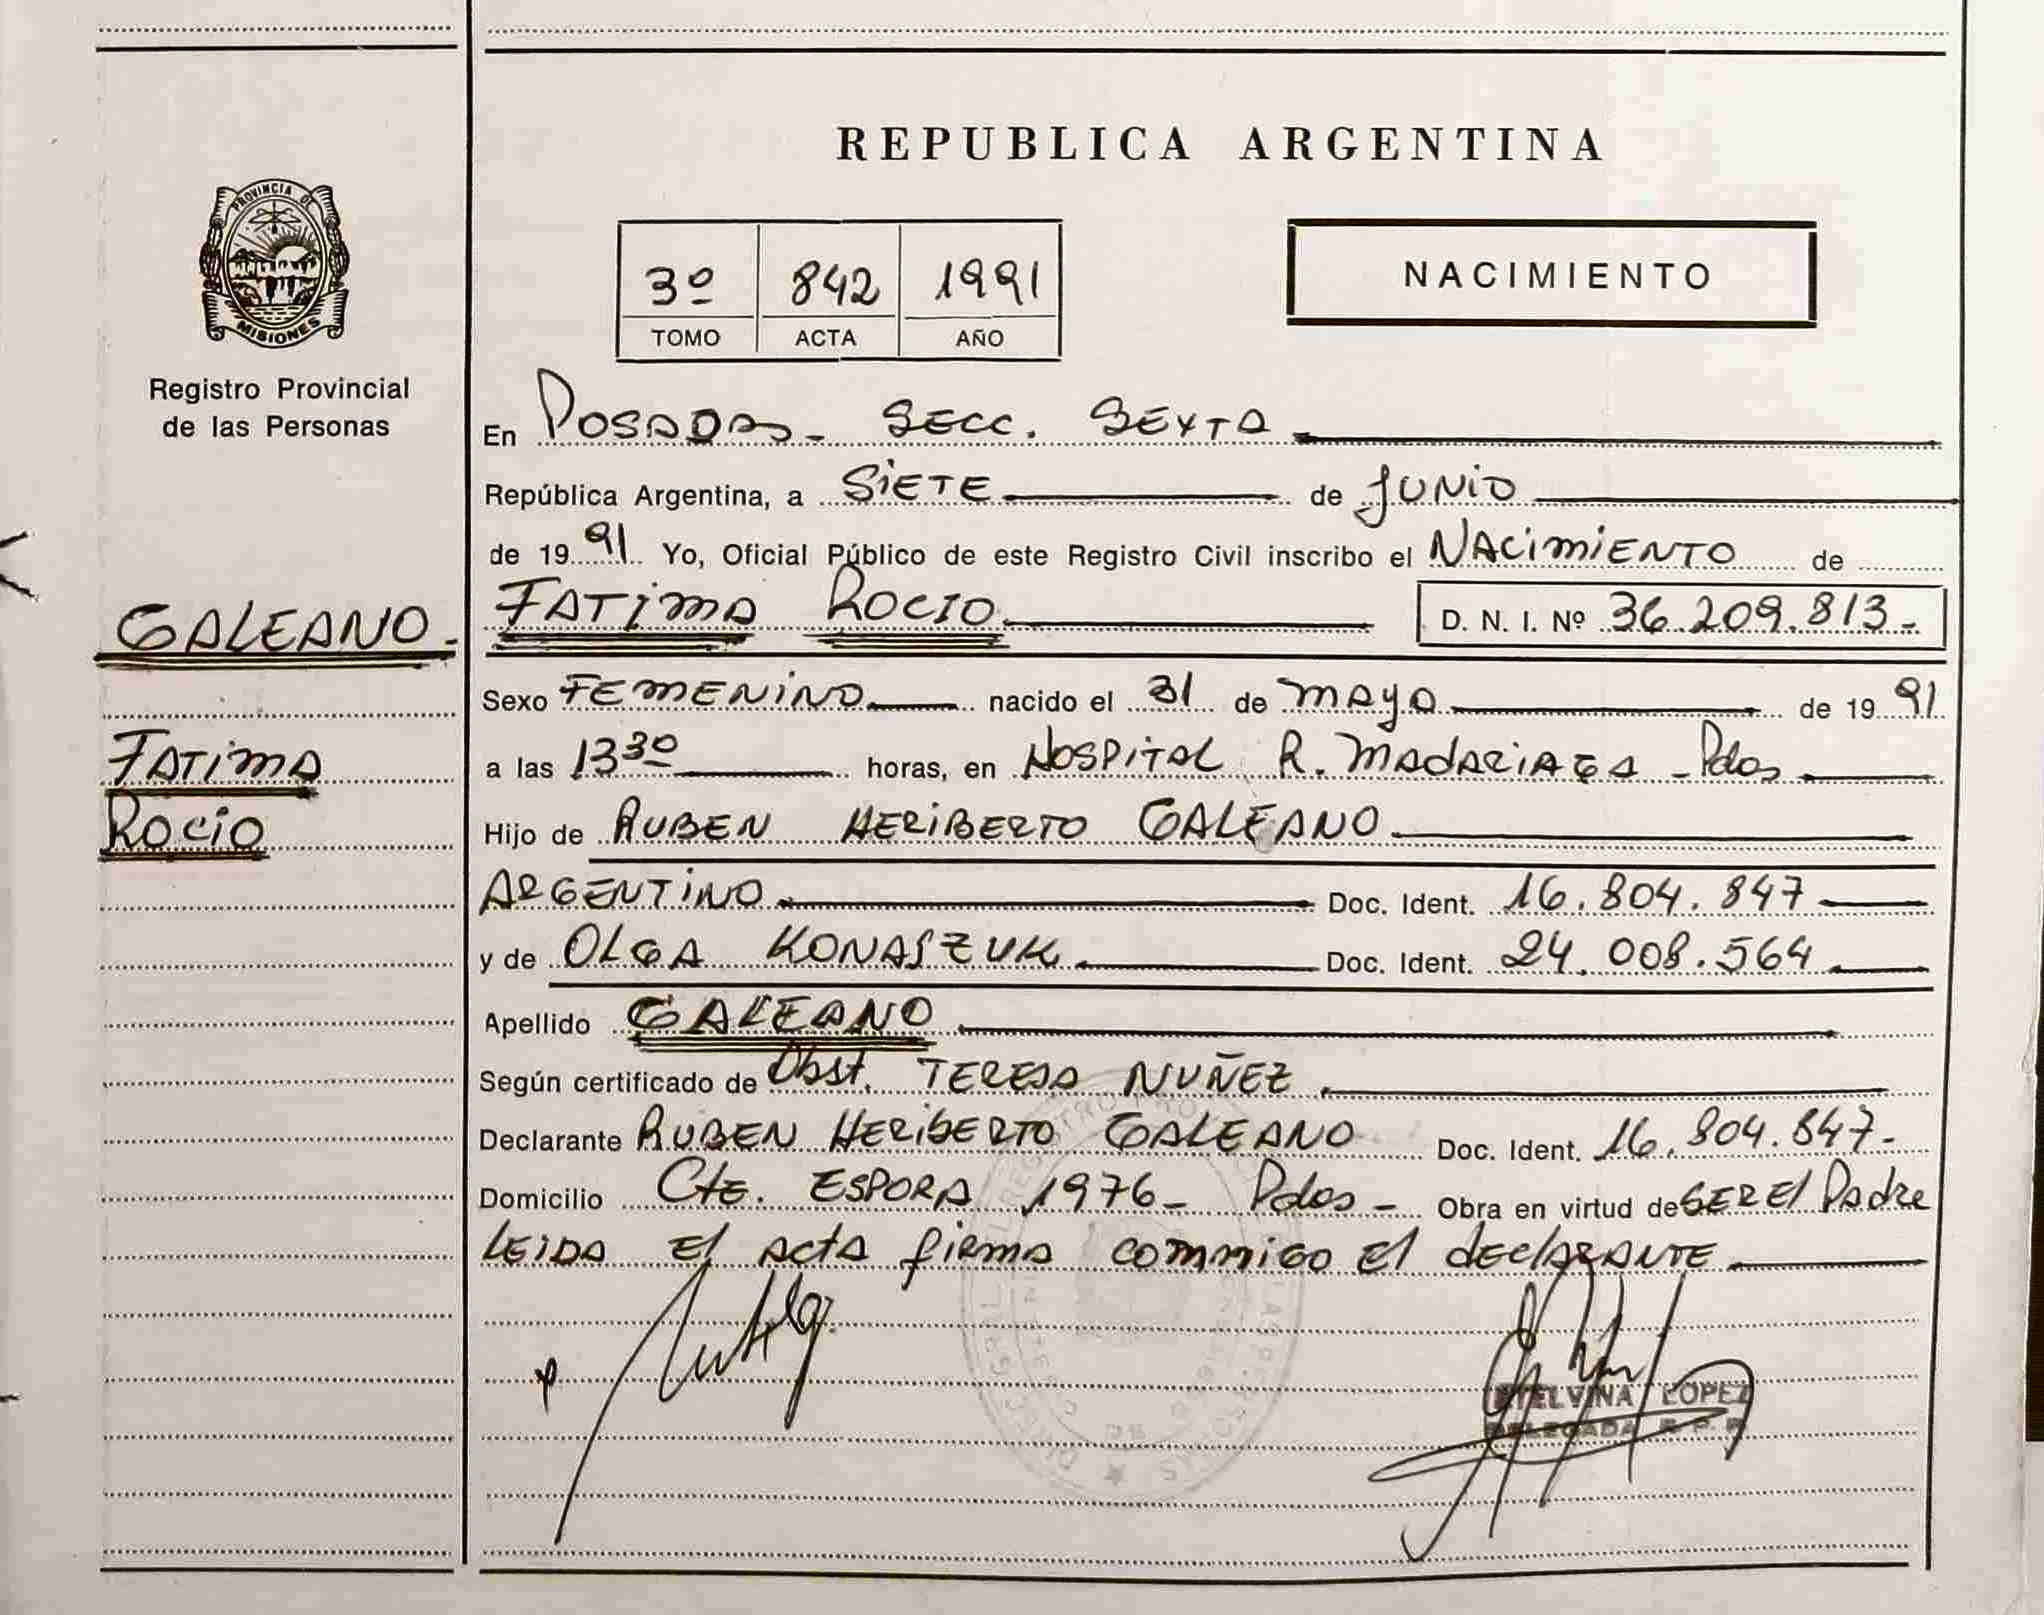 PROVINCIA DE
MISIONES
Registro Provincial
de las Personas
GALEANO.
FATIMA
ROCIO
REPUBLICA ARGENTINA
3º 842 1991
TOMO ACTA AÑO
NACIMIENTO
En POSADAS - SECC. SEXTA
República Argentina, a SIETE de JUNIO
de 19 91 Yo, Oficial Público de este Registro Civil inscribo el NACIMIENTO de
FATIMA ROCIO D. N. I. Nº 36.209.813-
Sexo FEMENINO nacido el 31 de MAYO de 19 91
a las 13 30 horas, en HOSPITAL R. MADARIAGA - Pdas
Hijo de RUBEN HERIBERTO GALEANO
ARGENTINO Doc. Ident. 16.804.847
y de OLGA KONASZUK Doc. Ident. 24.008.564
Apellido GALEANO
Según certificado de Obst. TERESA NUÑEZ.
Declarante RUBEN HERIBERTO GALEANO Doc. Ident. 16.804.847-
Domicilio Cte. ESPORA 1976- Pdas - Obra en virtud de SER El Padre
LEIDA El ACTA firma commigo El dEClARANTE
ETELVINA LOPEZ
DELEGADA R. P. P.